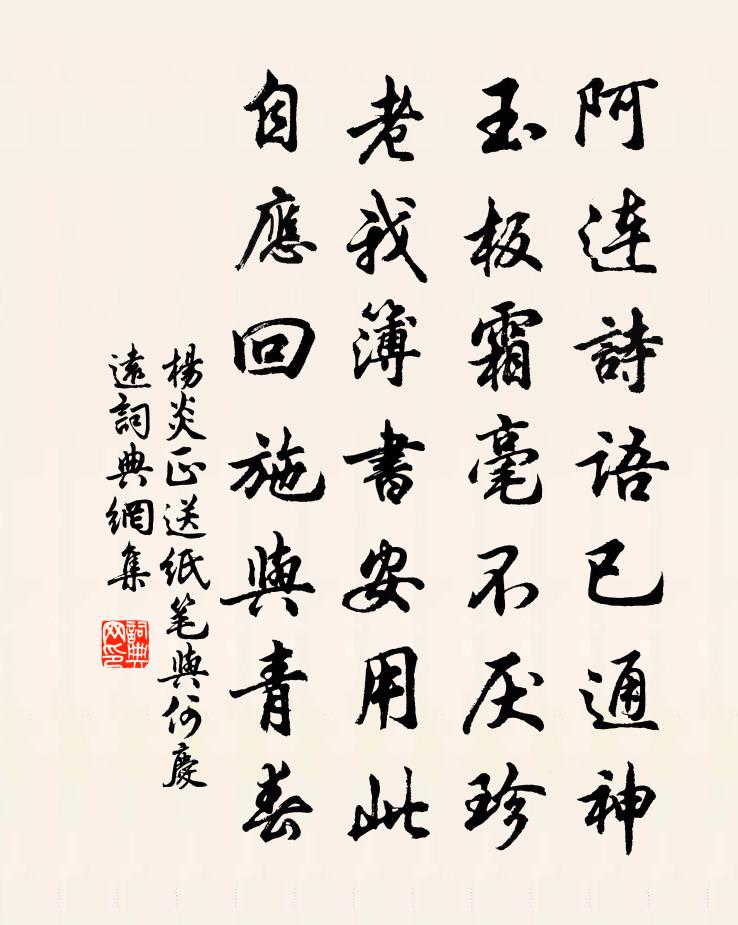 阿连詩語已通神
玉板霜毫不厌珍
老我簿書安用此
自應回施與青春
楊炎正送纸笔與何慶
遠詞典網集
詞典
网印